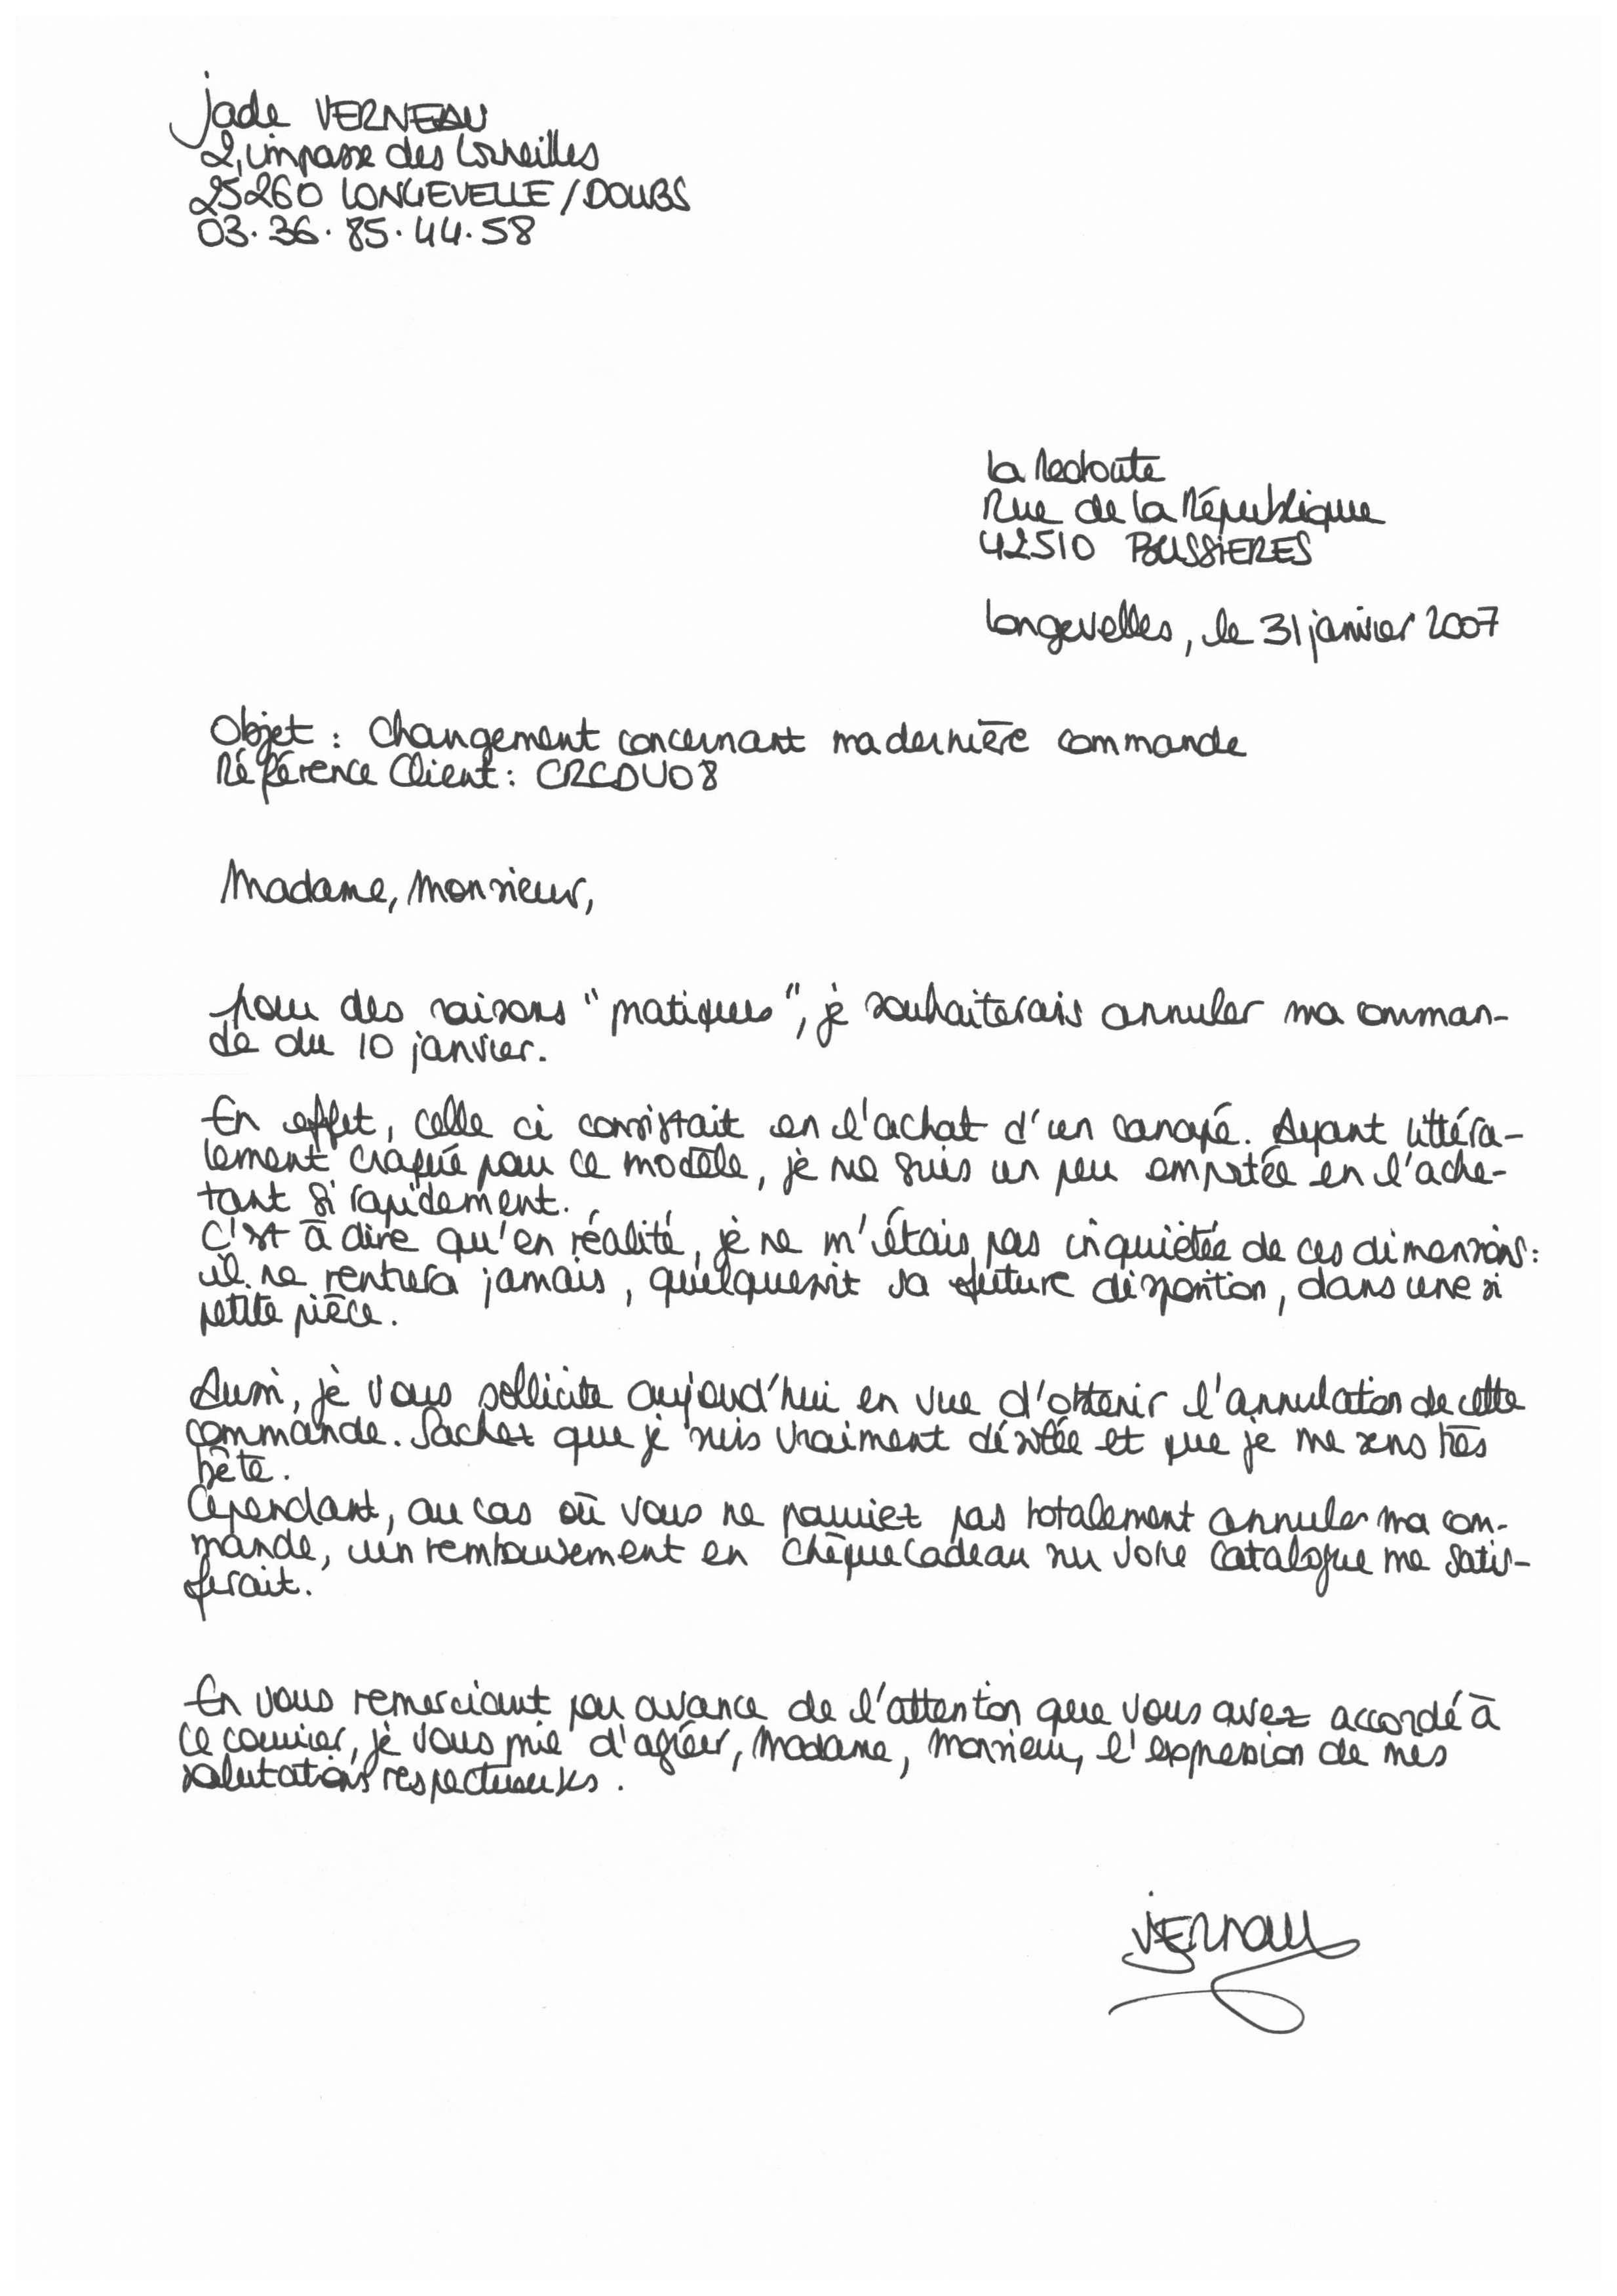 Jade VERNEAU
2, impasse des Corneilles
25260 LONGEVELLE / DOUBS
03.36.85.44.58
La Redoute
Rue de la République
42510 BUSSIERES
Longevelles, le 31 janvier 2007
Objet : Changement concernant ma dernière commande
Référence Client : CRCDU08
Madame, Monsieur,
pour des raisons "pratiques", je souhaiterais annuler ma comman-
de du 10 janvier.
En effet, celle ci consistait en l'achat d'un canapé. Ayant littéra-
lement craqué pour ce modèle, je me suis un peu emportée en l'ache-
tant si rapidement.
C'est à dire qu'en réalité, je ne m'étais pas inquiétée de ces dimensions :
il ne rentrera jamais, quelquesoit sa future disposition, dans une si
petite pièce.
Aussi, je vous sollicite aujourd'hui en vue d'obtenir l'annulation de cette
commande. Sachez que je suis vraiment désolée et que je me sens très
bête.
Cependant, au cas où vous ne pourriez pas totalement annuler ma com-
mande, un remboursement en chèque cadeau sur votre catalogue me satis-
ferait.
En vous remerciant par avance de l'attention que vous avez accordé à
ce courrier, je vous prie d'agréer, Madame, Monsieur, l'expression de mes
salutations respectueuses.